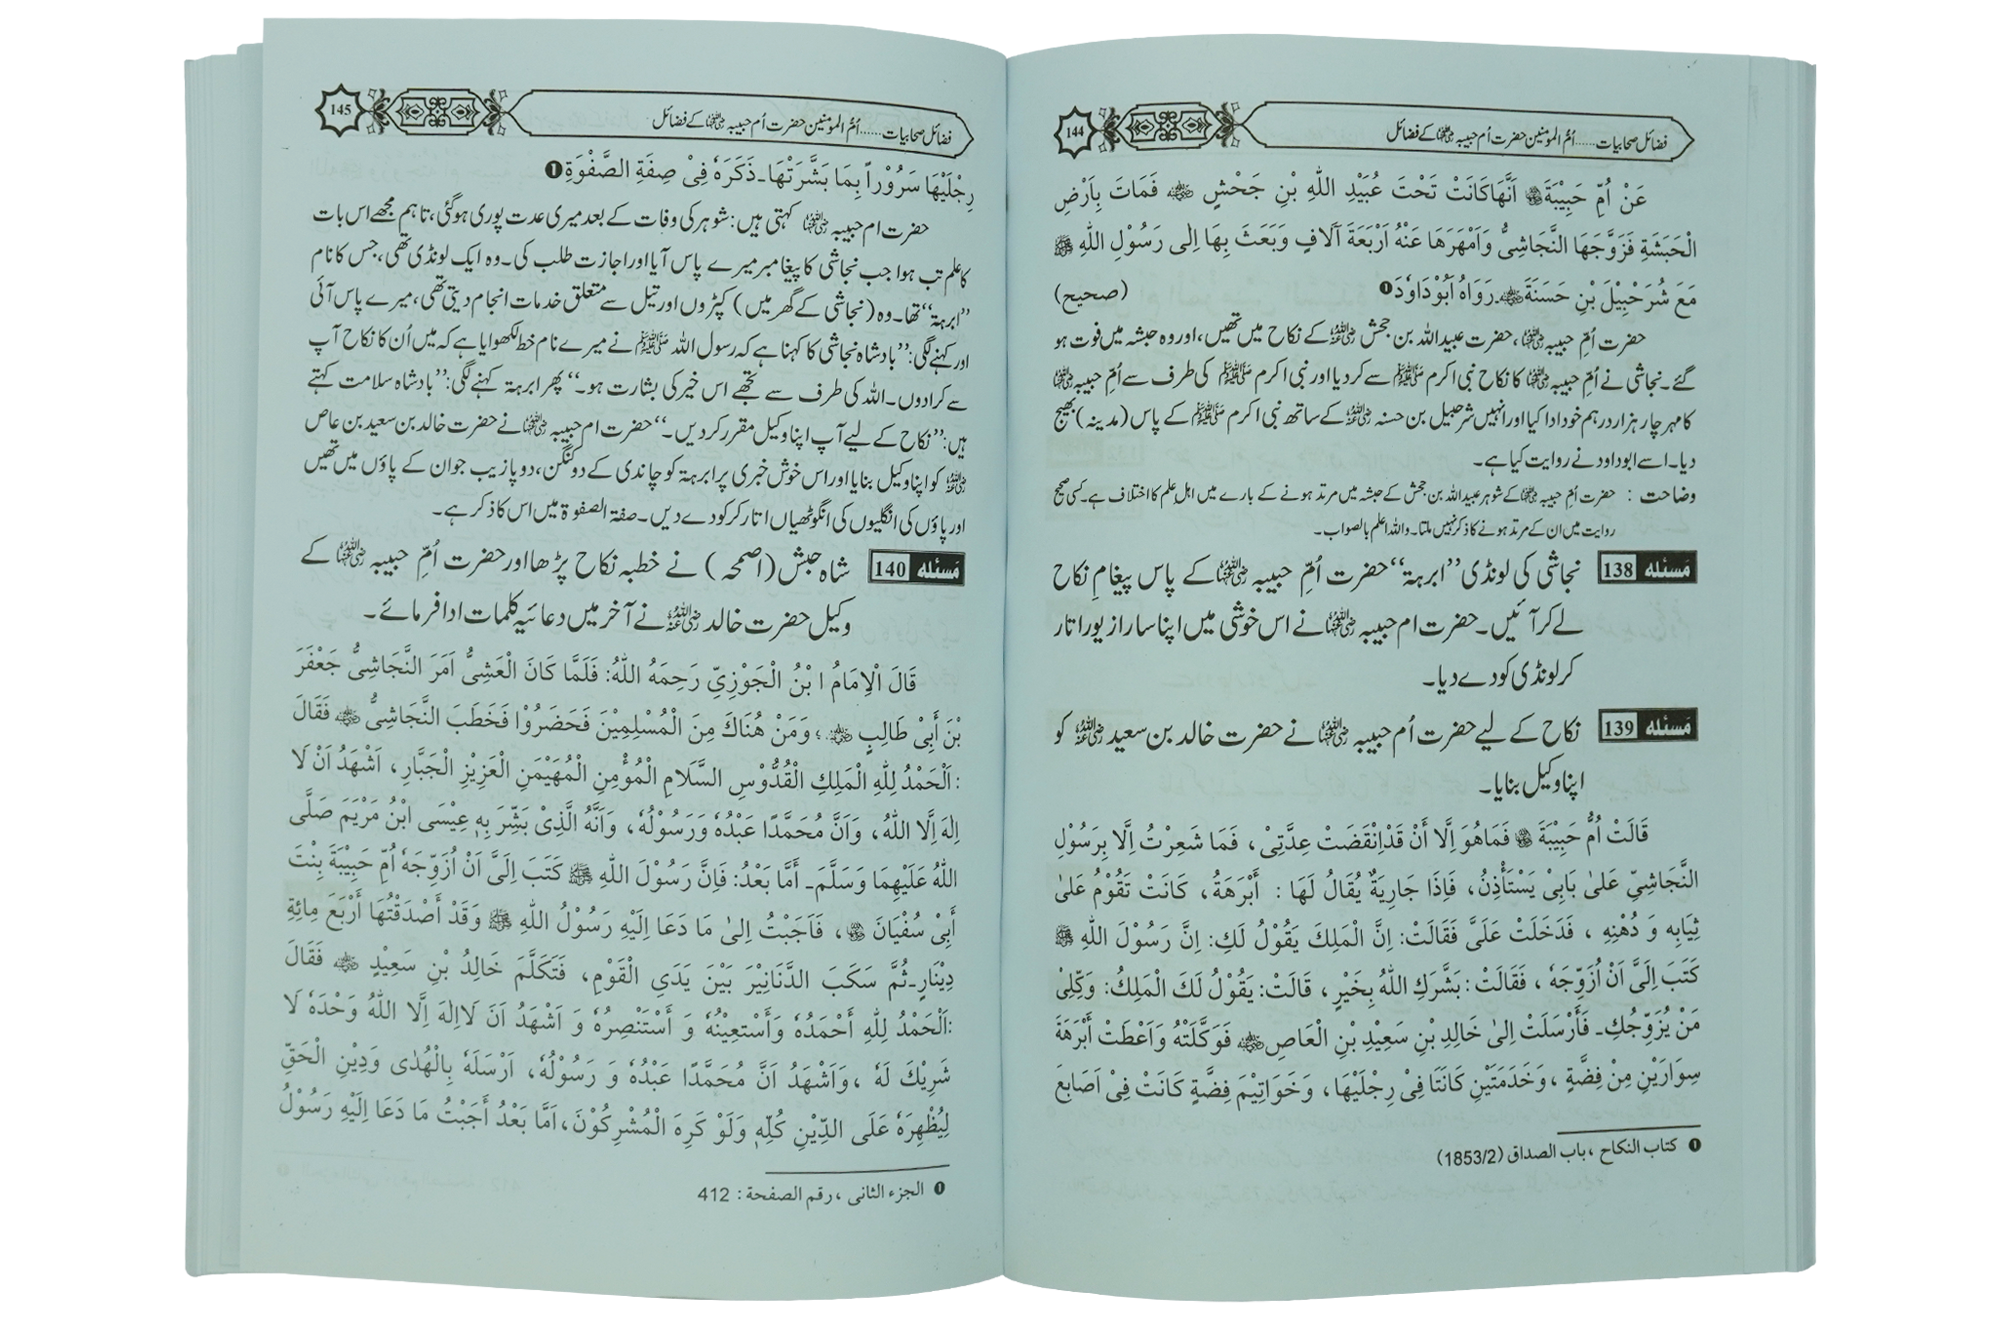 144
فضائل صحابیات......اُمُّ المومنین حضرت اُم حبیبہ رضی اللہ عنہا کے فضائل
عَنْ اُمِّ حَبِیْبَةَ رضی اللہ عنہا اَنَّهَا كَانَتْ تَحْتَ عُبَیْدِ اللّٰهِ بْنِ جَحْشٍ رضی اللہ عنہ فَمَاتَ بِاَرْضِ
الْحَبَشَةِ فَزَوَّجَهَا النَّجَاشِیُّ وَاَمْهَرَهَا عَنْهُ اَرْبَعَةَ آلَافٍ وَبَعَثَ بِهَا اِلٰی رَسُوْلِ اللّٰهِ ﷺ
مَعَ شُرَحْبِیْلَ بْنِ حَسَنَةَ رضی اللہ عنہ۔رَوَاهُ اَبُوْدَاوٗدَ❶ (صحیح)
حضرت اُمِّ حبیبہ رضی اللہ عنہا، حضرت عبیداللہ بن جحش رضی اللہ عنہ کے نکاح میں تھیں، اور وہ حبشہ میں فوت ہو
گئے۔نجاشی نے اُمِّ حبیبہ رضی اللہ عنہا کا نکاح نبی اکرم ﷺ سے کردیا اور نبی اکرم ﷺ کی طرف سے اُمِّ حبیبہ رضی اللہ عنہا
کا مہر چار ہزار درہم خود ادا کیا اور انہیں شرحبیل بن حسنہ رضی اللہ عنہ کے ساتھ نبی اکرم ﷺ کے پاس (مدینہ) بھیج
دیا۔اسے ابوداود نے روایت کیا ہے۔
وضاحت : حضرت اُمِّ حبیبہ رضی اللہ عنہا کے شوہر عبیداللہ بن جحش کے حبشہ میں مرتد ہونے کے بارے میں اہل علم کا اختلاف ہے۔کسی صحیح
روایت میں ان کے مرتد ہونے کا ذکر نہیں ملتا۔واللہ اعلم بالصواب۔
مَسئله 138 نجاشی کی لونڈی ’’ابرہۃ‘‘ حضرت اُمِّ حبیبہ رضی اللہ عنہا کے پاس پیغام نکاح
لے کر آئیں۔حضرت ام حبیبہ رضی اللہ عنہا نے اس خوشی میں اپنا سارا زیور اتار
کر لونڈی کو دے دیا۔
مَسئله 139 نکاح کے لیے حضرت اُم حبیبہ رضی اللہ عنہا نے حضرت خالد بن سعید رضی اللہ عنہ کو
اپنا وکیل بنایا۔
قَالَتْ اُمُّ حَبِیْبَةَ رضی اللہ عنہا فَمَاهُوَ اِلَّا أَنْ قَدْاِنْقَضَتْ عِدَّتِیْ، فَمَا شَعِرْتُ اِلَّا بِرَسُوْلِ
النَّجَاشِیِّ عَلٰی بَابِیْ یَسْتَأْذِنُ، فَاِذَا جَارِیَةٌ یُقَالُ لَهَا : أَبْرَهَةُ، كَانَتْ تَقُوْمُ عَلٰی
ثِیَابِهِ وَ دُهْنِهِ ، فَدَخَلَتْ عَلَیَّ فَقَالَتْ: اِنَّ الْمَلِكَ یَقُوْلُ لَكِ: اِنَّ رَسُوْلَ اللّٰهِ ﷺ
كَتَبَ اِلَیَّ اَنْ اُزَوِّجَهٗ ، فَقَالَتْ: بَشَّرَكِ اللّٰهُ بِخَیْرٍ، قَالَتْ: یَقُوْلُ لَكَ الْمَلِكُ: وَكِّلِیْ
مَنْ یُزَوِّجُكِ۔فَأَرْسَلَتْ اِلٰی خَالِدِ بْنِ سَعِیْدِ بْنِ الْعَاصِ رضی اللہ عنہ فَوَكَّلَتْهُ وَاَعْطَتْ أَبْرَهَةَ
سِوَارَیْنِ مِنْ فِضَّةٍ ، وَخَدَمَتَیْنِ كَانَتَا فِیْ رِجْلَیْهَا، وَخَوَاتِیْمَ فِضَّةٍ كَانَتْ فِیْ اَصَابِعَ
❶ كتاب النكاح ، باب الصداق (1853/2)
145
فضائل صحابیات......اُمُّ المومنین حضرت اُم حبیبہ رضی اللہ عنہا کے فضائل
رِجْلَیْهَا سَرُوْراً بِمَا بَشَّرَتْهَا۔ذَكَرَهٗ فِیْ صِفَةِ الصَّفْوَةِ❶
حضرت ام حبیبہ رضی اللہ عنہا کہتی ہیں: شوہر کی وفات کے بعد میری عدت پوری ہوگئی، تاہم مجھے اس بات
کا علم تب ہوا جب نجاشی کا پیغامبر میرے پاس آیا اور اجازت طلب کی۔وہ ایک لونڈی تھی، جس کا نام
’’ابرہۃ‘‘ تھا۔وہ (نجاشی کے گھر میں) کپڑوں اور تیل سے متعلق خدمات انجام دیتی تھی، میرے پاس آئی
اور کہنے لگی: ’’بادشاہ نجاشی کا کہنا ہے کہ رسول اللہ ﷺ نے میرے نام خط لکھوایا ہے کہ میں اُن کا نکاح آپ
سے کرادوں۔اللہ کی طرف سے تجھے اس خیر کی بشارت ہو۔‘‘ پھر ابرہۃ کہنے لگی: ’’بادشاہ سلامت کہتے
ہیں: ’’نکاح کے لیے آپ اپنا وکیل مقرر کردیں۔‘‘ حضرت ام حبیبہ رضی اللہ عنہا نے حضرت خالد بن سعید بن عاص
رضی اللہ عنہ کو اپنا وکیل بنایا اور اس خوش خبری پر ابرہۃ کو چاندی کے دو کنگن، دو پازیب جو ان کے پاؤں میں تھیں
اور پاؤں کی انگلیوں کی انگوٹھیاں اتار کر کو دے دیں۔صفۃ الصفوۃ میں اس کا ذکر ہے۔
مَسئله 140 شاہ حبش (اصمحہ) نے خطبہ نکاح پڑھا اور حضرت اُمِّ حبیبہ رضی اللہ عنہا کے
وکیل حضرت خالد رضی اللہ عنہ نے آخر میں دعائیہ کلمات ادا فرمائے۔
قَالَ الْاِمَامُ ابْنُ الْجَوْزِیِّ رَحِمَهُ اللّٰهُ: فَلَمَّا كَانَ الْعَشِیُّ اَمَرَ النَّجَاشِیُّ جَعْفَرَ
بْنَ أَبِیْ طَالِبٍ رضی اللہ عنہ؛ وَمَنْ هُنَاكَ مِنَ الْمُسْلِمِیْنَ فَحَضَرُوْا فَخَطَبَ النَّجَاشِیُّ رضی اللہ عنہ فَقَالَ
:اَلْحَمْدُ لِلّٰهِ الْمَلِكِ الْقُدُّوْسِ السَّلَامِ الْمُؤْمِنِ الْمُهَیْمَنِ الْعَزِیْزِ الْجَبَّارِ، اَشْهَدُ اَنْ لَا
اِلٰهَ اِلَّا اللّٰهُ، وَاَنَّ مُحَمَّدًا عَبْدُهٗ وَرَسُوْلُهٗ، وَاَنَّهُ الَّذِیْ بَشِّرَ بِهٖ عِیْسَی ابْنُ مَرْیَمَ صَلَّی
اللّٰهُ عَلَیْهِمَا وَسَلَّمَ۔ أَمَّا بَعْدُ: فَاِنَّ رَسُوْلَ اللّٰهِ ﷺ كَتَبَ اِلَیَّ اَنْ اُزَوِّجَهٗ اُمِّ حَبِیْبَةَ بِنْتَ
أَبِیْ سُفْیَانَ رضی اللہ عنہا، فَاَجَبْتُ اِلیٰ مَا دَعَا اِلَیْهِ رَسُوْلُ اللّٰهِ ﷺ وَقَدْ أَصْدَقْتُهَا أَرْبَعَ مِائَةِ
دِیْنَارٍ۔ثُمَّ سَكَبَ الدَّنَانِیْرَ بَیْنَ یَدَیِ الْقَوْمِ، فَتَكَلَّمَ خَالِدُ بْنِ سَعِیْدٍ رضی اللہ عنہ فَقَالَ
:اَلْحَمْدُ لِلّٰهِ أَحْمَدُهٗ وَأَسْتعِیْنُهٗ وَ أَسْتَنْصِرُهٗ وَ اَشْهَدُ اَنْ لَااِلٰهَ اِلَّا اللّٰهُ وَحْدَهٗ لَا
شَرِیْكَ لَهٗ ، وَاَشْهَدُ اَنَّ مُحَمَّدًا عَبْدُهٗ وَ رَسُوْلُهٗ، اَرْسَلَهٗ بِالْهُدٰی وَدِیْنِ الْحَقِّ
لِیُظْهِرَهٗ عَلَی الدِّیْنِ كُلِّهٖ وَلَوْ كَرِهَ الْمُشْرِكُوْنَ، اَمَّا بَعْدُ أَجَبْتُ مَا دَعَا اِلَیْهِ رَسُوْلُ
❶ الجزء الثانی ، رقم الصفحة : 412